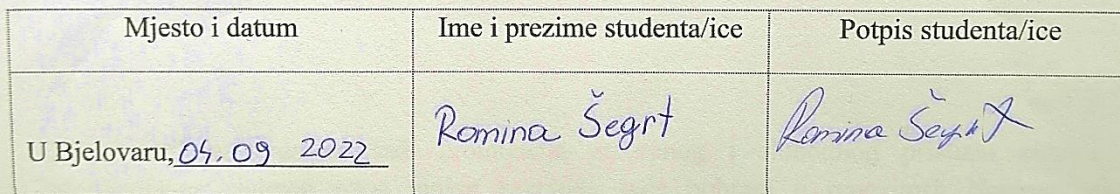 Mjesto i datum
Ime i prezime studenta/ice
Potpis studenta/ice
U Bjelovaru, 04.09 2022
Romina Šegrt
Romina Šegrt